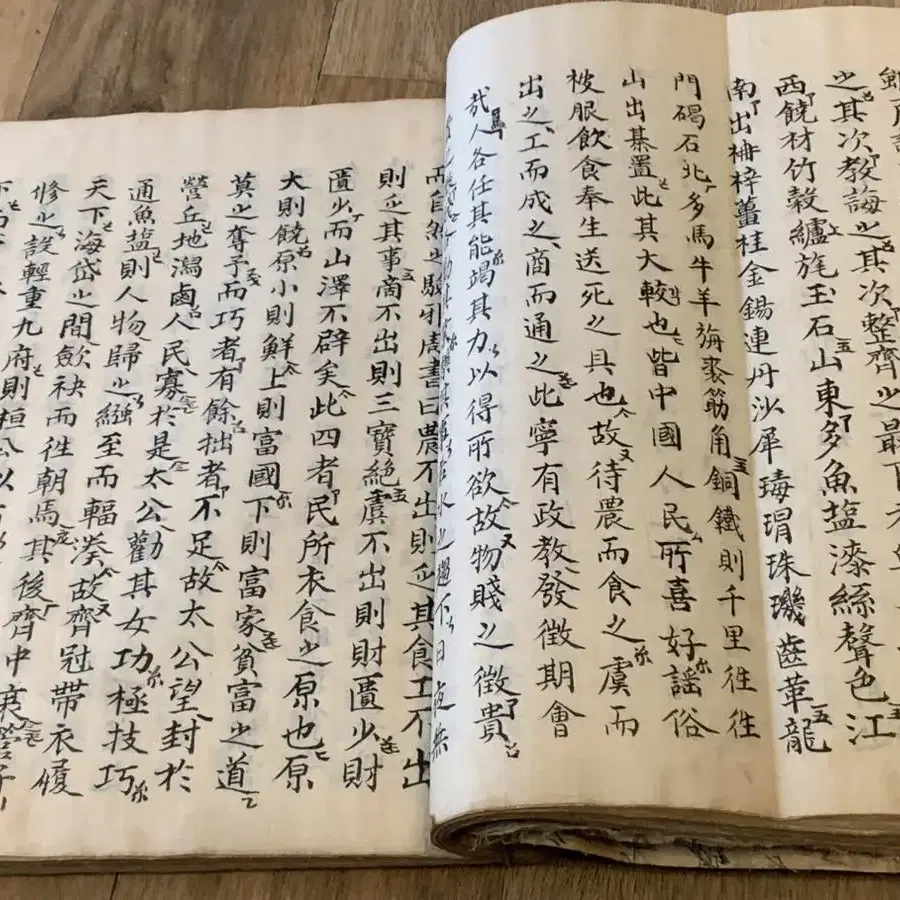 之其次教誨之其次整齊之最下
西饒材竹穀纑旄玉石山東多魚塩漆絲聲色江
南出枏梓薑桂金錫連丹沙犀瑇瑁珠璣齒革龍
門碣石北多馬牛羊旃裘筋角銅鐵則千里往往
山出棊置此其大較也皆中國人民所喜好謠俗
被服飲食奉生送死之具也故待農而食之虞而
出之工而成之商而通之此寧有政教發徵期會
哉人各任其能竭其力以得所欲故物賤之徵貴
日夜無
而自然之驗邪周書曰農不出則乏其食工不出
則乏其事商不出則三寶絕虞不出則財匱少財
匱少而山澤不辟矣此四者民所衣食之原也原
大則饒原小則鮮上則富國下則富家貧富之道
莫之奪子而巧者有餘拙者不足故太公望封於
營丘地潟鹵人民寡於是太公勸其女功極技巧
通魚塩則人物歸之繦至而輻湊故齊冠帶衣履
天下海岱之間斂袂而往朝焉其後齊中衰管子
修之設輕重九府則桓公以